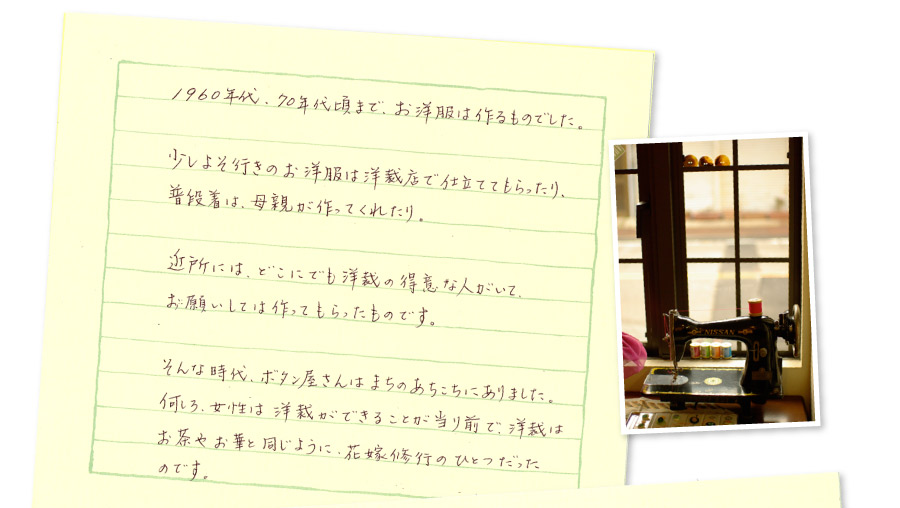 1960年代、70年代頃まで、お洋服は作るものでした。
少しよそ行きのお洋服は洋裁店で仕立ててもらったり、
普段着は、母親が作ってくれたり。
近所には、どこにでも洋裁の得意な人がいて、
お願いしては作ってもらったものです。
そんな時代、ボタン屋さんはまちのあちこちにありました。
何しろ、女性は洋裁ができることが当り前で、洋裁は
お茶やお華と同じように、花嫁修行のひとつだった
のです。
NISSAN